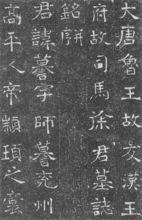 大唐魯王故友漢王
府故司馬徐君墓誌
銘并
君諱謩字師謩兖州
高平人帝顓頊之裔